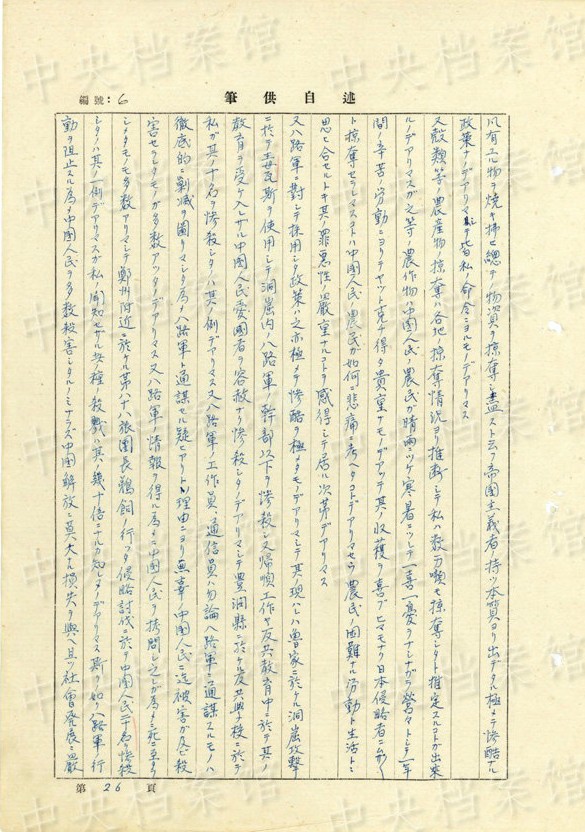 中央档案馆
編號：6
筆供自述
凡有エル物ヲ焼キ掃ヒ總テノ物資ヲ掠奪シ盡スト云フ帝國主義者ノ持ツ本質ヨリ出デタル極メテ惨酷ナル
政策ナノデアリマシテ皆私ノ命令ニヨルモノデアリマス
又殻類等ノ農産物ノ掠奪ハ各地ノ掠奪情況ヨリ推断シテ私ハ数万噸モ掠奪シタト推定スルコトガ出来
ルノデアリマスガ之等ノ農作物ハ中國人民ノ農民ガ晴雨ニツケ寒暑ニツレテ一喜一憂ヲナシナガラ營々トシテ一年
間ノ辛苦ノ労動ニヨリテヤット克チ得タ貴重ナモノデアッテ其ノ收獲ヲ喜ブヒマモナク日本侵略者ニ
ト掠奪セラレマスコトハ中國人民ノ農民ガ如何ニ悲痛ニ考ヘタコトデアリマセウ農民ノ困難ナル労動ト生活トニ
思ヒ合セルトキ其ノ罪悪性ノ嚴重ナルコトヲ感得シテ居ル次第デアリマス
又八路軍ニ對シテ採用シタ政策ハ之亦極メテ惨酷ヲ極メタモノデアリマシテ其ノ現ハレハ魯家ニ於ケル洞窟攻撃
ニ於テ毒瓦斯ヲ使用シテ洞窟内ノ八路軍ノ幹部以下ヲ惨殺シ又帰順工作ヤ反共教育中ニ於テ其ノ
教育ヲ受ケ入レザル中國人民愛國者ヲ容赦ナク惨殺シタノデアリマシテ豊潤縣ニ於ケル反共學校ニ於テ
私ガ其ノ十名ヲ惨殺シタノハ其ノ例デアリマス又八路軍ノ工作員、通信員ハ勿論八路軍ニ通謀スルモノハ
徹底的ニ剿滅ヲ圖リマシタ為メ八路軍ト通謀セル疑ヒアリトノ理由ニヨリ無辜ノ中國人民ニ迄被害ガ及ビ殺
害セラレタモノガ多数アッタノデアリマス又八路軍ノ情報ヲ得ル為メニ中國人民ヲ拷問シ之ガ為メニ死ニ至ラ
シメタモノモ多数アリマシテ鄭州附近ニ於ケル第八十八旅團長鵜飼ノ行ツタ侵略討伐ニ於テ中國人民二十名ヲ惨殺
シタノハ其ノ一例デアリマスガ私ノ聞知セザル此ノ種ノ殺戮ハ其ノ幾十倍ニナルカ知レナイノデアリマス斯ノ如ク八路軍ノ行
動ヲ阻止スル為メ中國人民ヲ多数殺害シタルノミナラズ中國解放ニ莫大ナル損失ヲ與ヘ且ツ社會發展ニ嚴
第26頁